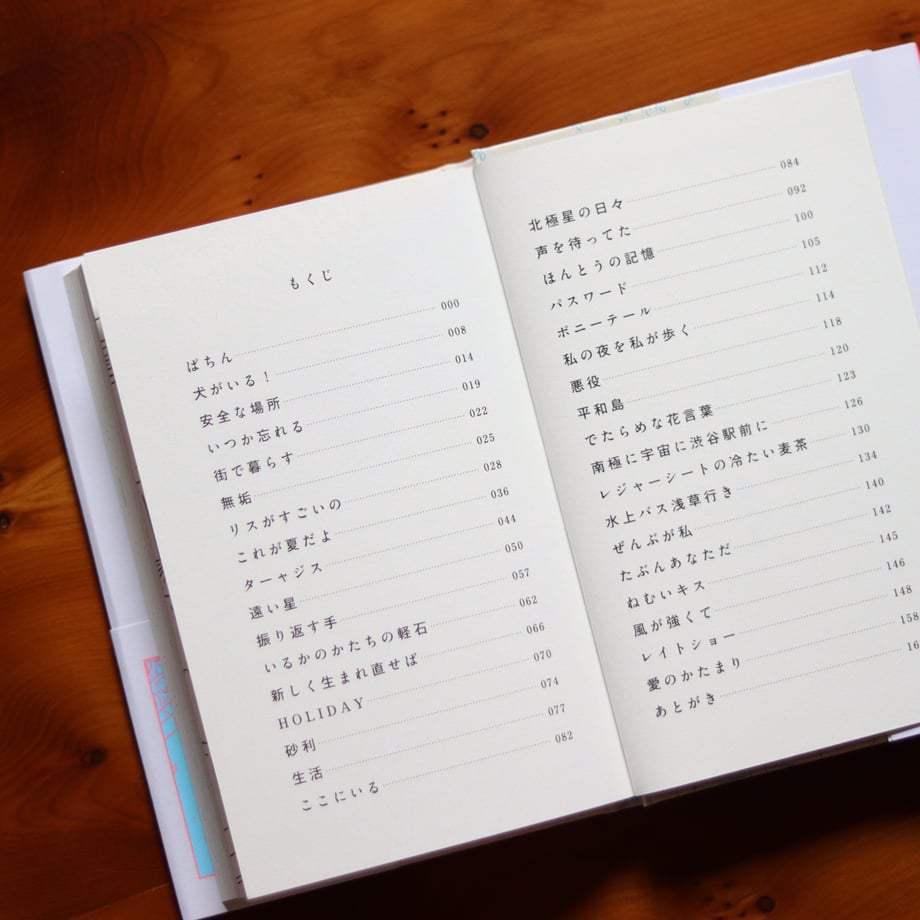 もくじ
ぱちん 000
犬がいる! 008
安全な場所 014
いつか忘れる 019
街で暮らす 022
無垢 025
リスがすごいの 028
これが夏だよ 036
ターャジス 044
遠い星 050
振り返す手 057
いるかのかたちの軽石 062
新しく生まれ直せば 066
HOLIDAY 070
砂利 074
生活 077
ここにいる 082
北極星の日々 084
声を待ってた 092
ほんとうの記憶 100
パスワード 105
ポニーテール 112
私の夜を私が歩く 114
悪役 118
平和島 120
でたらめな花言葉 123
南極に宇宙に渋谷駅前に 126
レジャーシートの冷たい麦茶 130
水上バス浅草行き 134
ぜんぶが私 140
たぶんあなただ 142
ねむいキス 145
風が強くて 146
レイトショー 148
愛のかたまり 158
あとがき